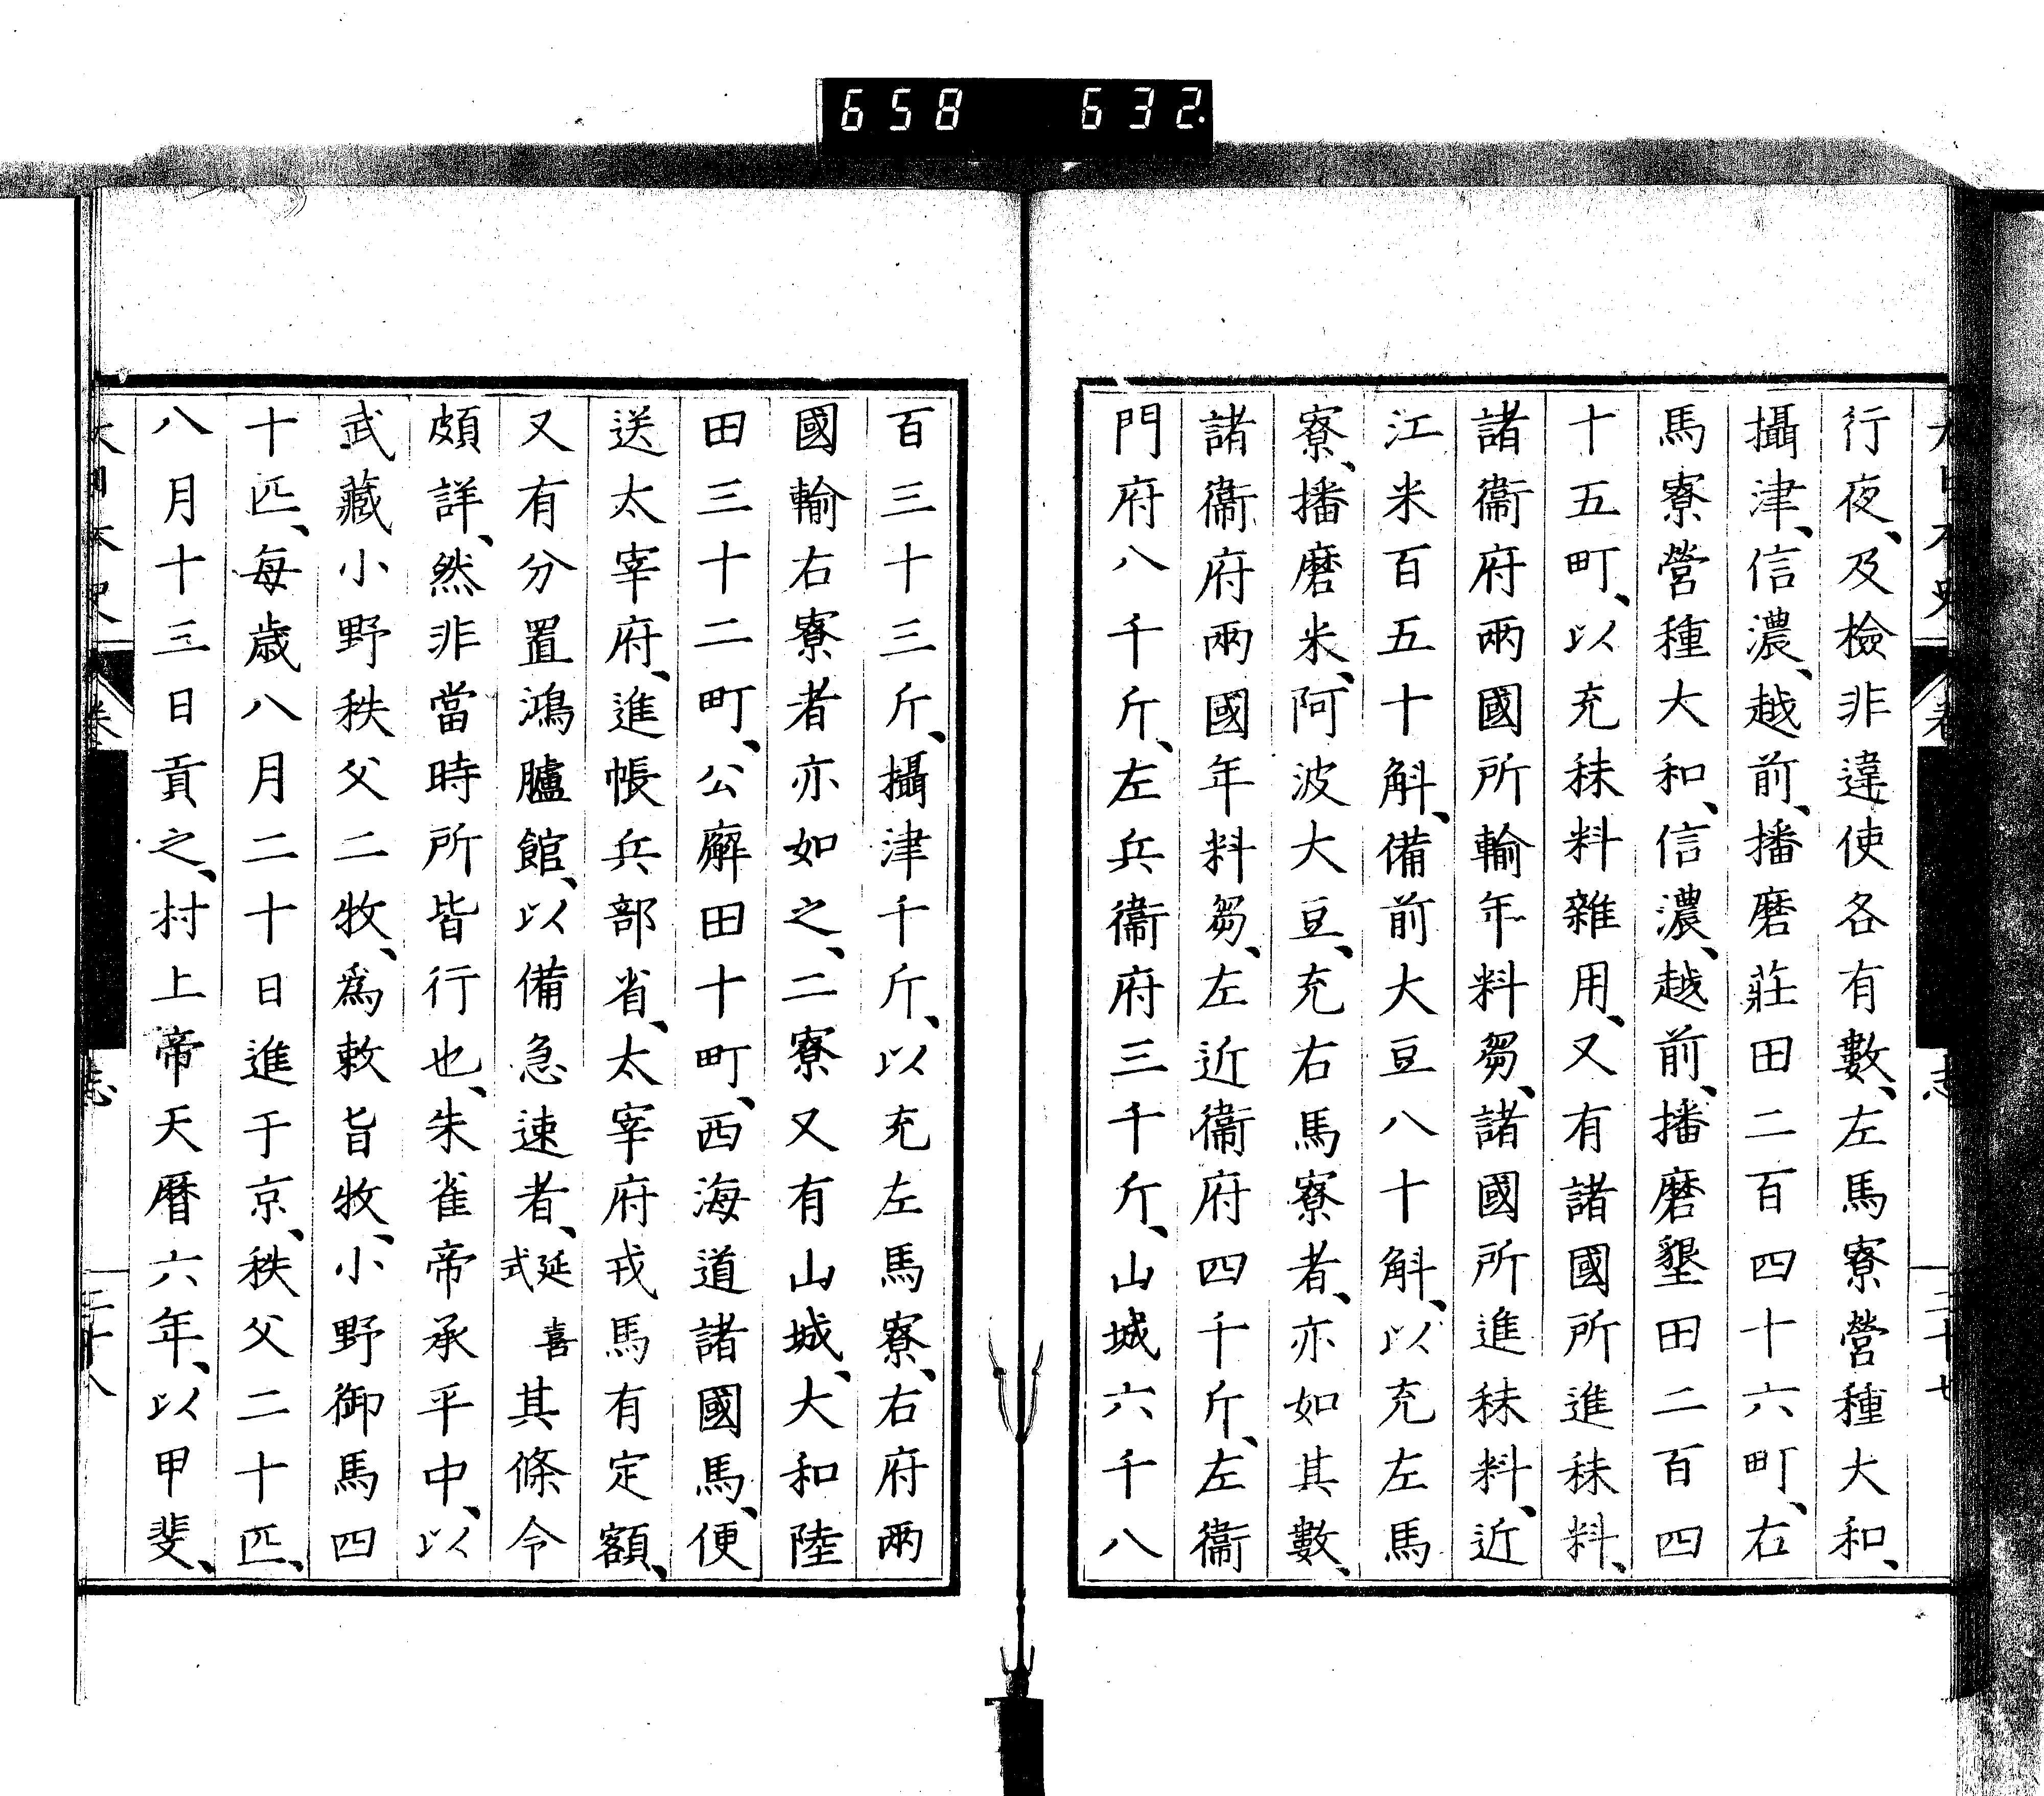 658 632.
行夜、及檢非違使各有數、左馬寮營種大和、
攝津、信濃、越前、播磨莊田二百四十六町、右
馬寮營種大和、信濃、越前、播磨墾田二百四
十五町、以充秣料雜用、又有諸國所進秣料、
諸衞府兩國所輸年料芻、諸國所進秣料、近
江米百五十斛、備前大豆八十斛、以充左馬
寮、播磨米、阿波大豆、充右馬寮者、亦如其數、
諸衞府兩國年料芻、左近衞府四千斤、左衞
門府八千斤、左兵衞府三千斤、山城六千八
百三十三斤、攝津千斤、以充左馬寮、右府兩
國輸右寮者亦如之、二寮又有山城、大和陸
田三十二町、公廨田十町、西海道諸國馬、便
送太宰府、進帳兵部省、太宰府戎馬有定額、
又有分置鴻臚館、以備急速者、延喜式其條令
頗詳、然非當時所皆行也、朱雀帝承平中、以
武藏小野秩父二牧、爲敕旨牧、小野御馬四
十匹、每歲八月二十日進于京、秩父二十匹、
八月十三日貢之、村上帝天曆六年、以甲斐、